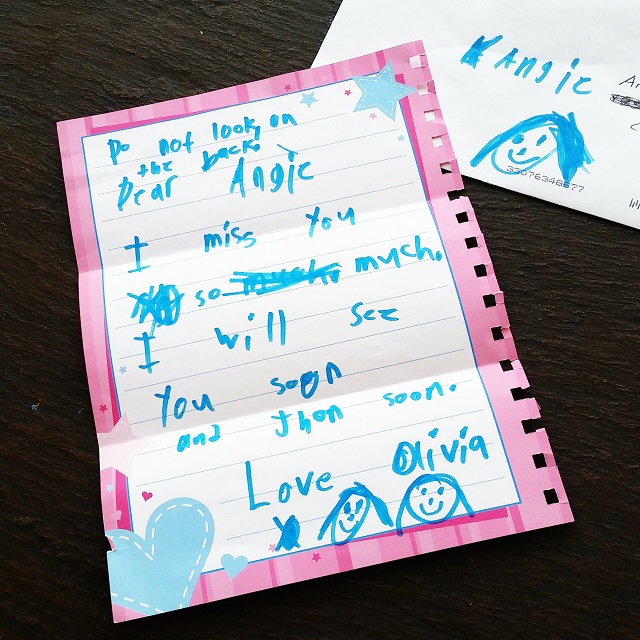 Do not look on
the back.
Dear Angie
I miss you
so much, much.
I will see
You soon
and Jhon soon.
Love Olivia
Angie